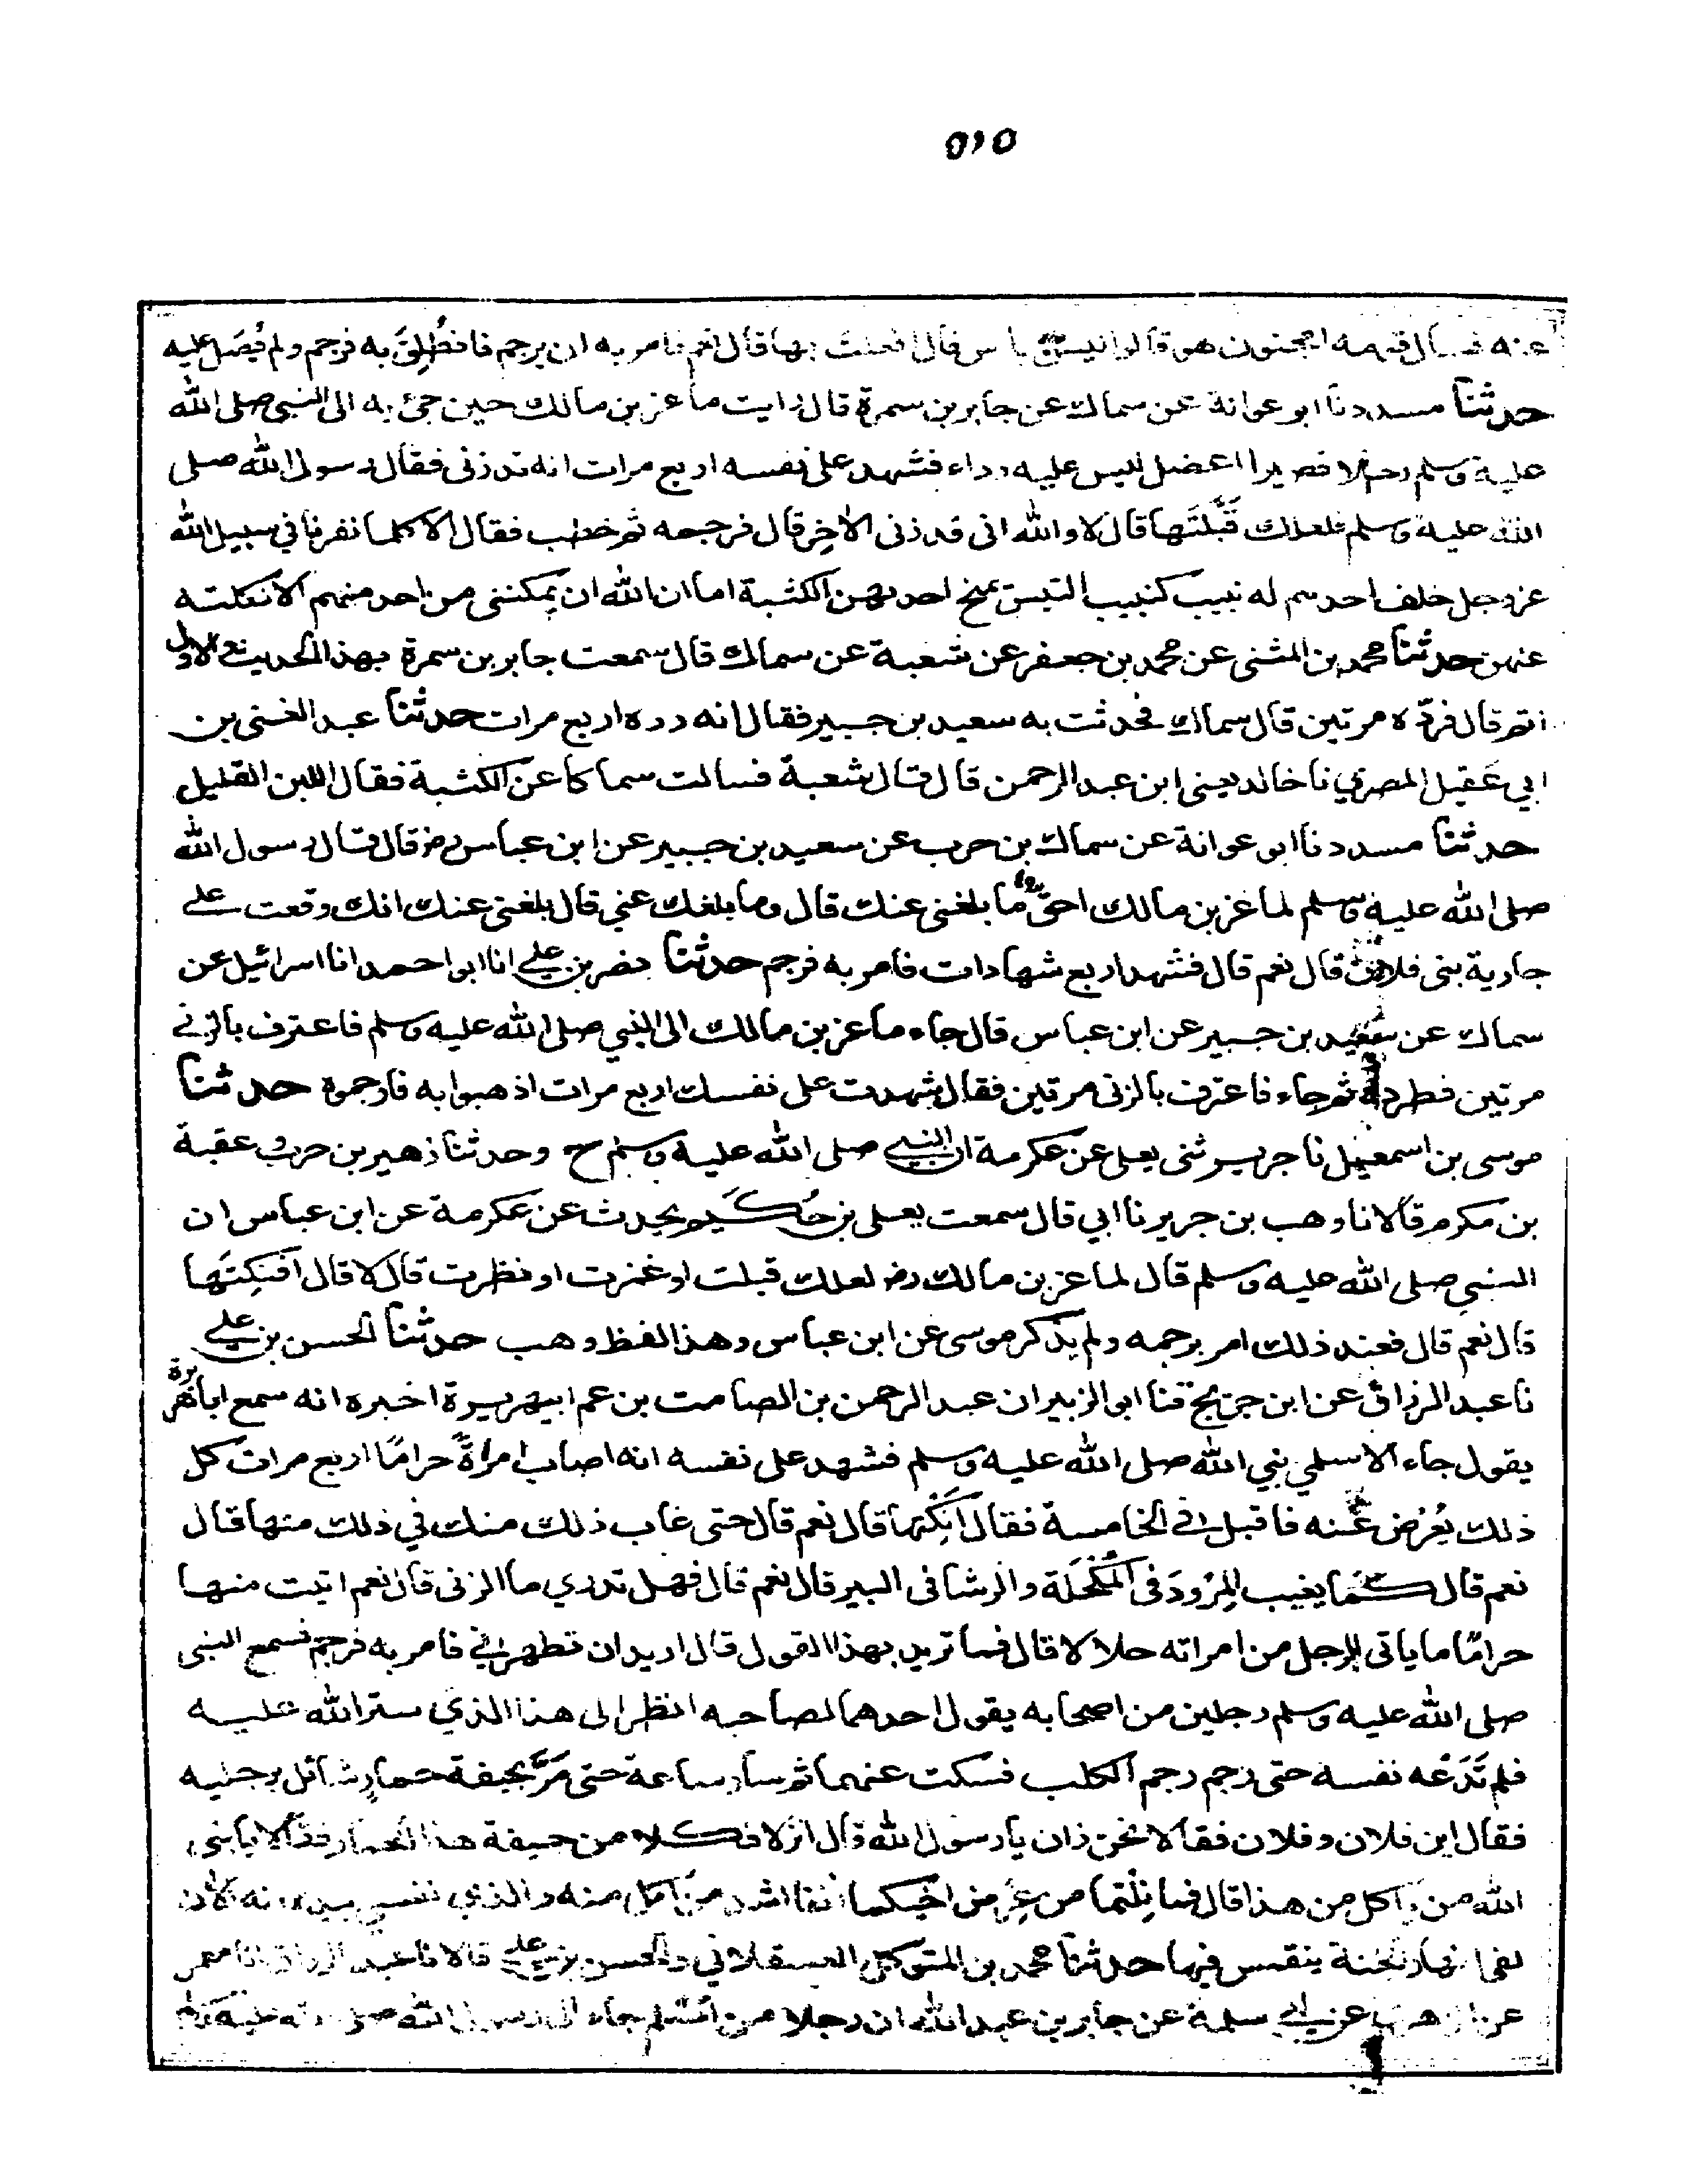 ٥١٥
عنه فسأل قومه امجنون هو قالوا ليس به بأس قال افعلت بها قال نعم فامر به ان يرجم فانطُلِقَ به فرجم ولم يُصَل عليه
حدثنا مسدد نا ابو عوانة عن سماك عن جابر بن سمرة قال رايت ماعز بن مالك حين جئ به الى النبي صلى الله
عليه وسلم رجلا قصيرا اعضل ليس عليه رداء فشهد على نفسه اربع مرات انه قد زنى فقال رسول الله صلى
الله عليه وسلم فلعلك قَبَّلتَها قال لا والله انى قد زنى الاخِر قال فرجمه ثم خطب فقال الا كلما نفرنا في سبيل الله
عز وجل خلف احدهم له نبيب كنبيب التيس يمنح احدهن الكثبة اما ان الله ان يمكننى من احد منهم الا نكلته
عنهن حدثنا محمد بن المثنى عن محمد بن جعفر عن شعبة عن سماك قال سمعت جابر بن سمرة بهذا الحديث والاول
اتم قال فردّه مرتين قال سماك فحدثت به سعيد بن جبير فقال انه رده اربع مرات حدثنا عبد الغنى بن
ابي عَقيل المصري نا خالد يعنى ابن عبد الرحمن قال قال شعبة فسالت سماكا عن الكثبة فقال اللبن القليل
حدثنا مسدد نا ابو عوانة عن سماك بن حرب عن سعيد بن جبير عن ابن عباس رضـ قال قال رسول الله
صلى الله عليه وسلم لماعز بن مالك احقّ ما بلغنى عنك قال وما بلغك عني قال بلغنى عنك انك وقعت على
جارية بنى فلان قال نعم قال فشهد اربع شهادات فامر به فرجم حدثنا نصر بن علي انا ابو احمد انا اسرائيل عن
سماك عن سعيد بن جبير عن ابن عباس قال جاء ماعز بن مالك الى النبي صلى الله عليه وسلم فاعترف بالزنى
مرتين فطرده ثم جاء فاعترف بالزنى مرتين فقال شهدت على نفسك اربع مرات اذهبوا به فارجموه حدثنا
موسى بن اسمعيل نا جرير ثنى يعلى عن عكرمة ان النبي صلى الله عليه وسلم ح وحدثنا زهير بن حرب وعقبة
بن مكرم قالا نا وهب بن جرير نا ابي قال سمعت يعلى بن حُكَيم يحدث عن عكرمة عن ابن عباس ان
النبي صلى الله عليه وسلم قال لماعز بن مالك رضـ لعلك قبلت او غمزت او نظرت قال لا قال افنِكتَها
قال نعم قال فعند ذلك امر برجمه ولم يذكر موسى عن ابن عباس وهذا لفظ وهب حدثنا الحسن بن علي
نا عبد الرزاق عن ابن جريج قنا ابو الزبير ان عبد الرحمن بن الصامت بن عم ابي هريرة اخبره انه سمع ابا هريرة
يقول جاء الاسلمي نبي الله صلى الله عليه وسلم فشهد على نفسه انه اصاب امراةً حرامًا اربع مرات كل
ذلك يُعْرض عنه فاقبل في الخامسة فقال اَنِكْتَها قال نعم قال حتى غاب ذلك منك في ذلك منها قال
نعم قال كما يغيب المِرْوَد فى المُكْحُلَة والرشا فى البير قال نعم قال فهل تدري ما الزنى قال نعم اتيت منها
حرامًا ما ياتى الرجل من امراته حلالا قال فما تريد بهذا القول قال اريد ان تطهرني فامر به فرجم فسمع النبى
صلى الله عليه وسلم رجلين من اصحابه يقول احدهما لصاحبه انظر الى هذا الذي ستر الله عليه
فلم تَدَعْه نفسه حتى رجم رجم الكلب فسكت عنهما ثم سار ساعة حتى مَرَّ بجيفة حمارٍ شائل برجليه
فقال اين فلان وفلان فقالا نحن ذان يا رسول الله قال انزلا فكلا من جيفة هذا الحمار فقالا يا نبى
الله من ياكل من هذا قال فما نِلْتما من عِرض اخيكما انفا اشد من اكل منه والذي نفسي بيده انه الآن
لفى انهار الجنة ينقمس فيها حدثنا محمد بن المتوكل العسقلاني والحسن بن علي قالا نا عبد الرزاق انا معمر
عن الزهري عن ابي سلمة عن جابر بن عبد الله ان رجلا من اَسْلم جاء الى رسول الله صلى الله عليه وسلم